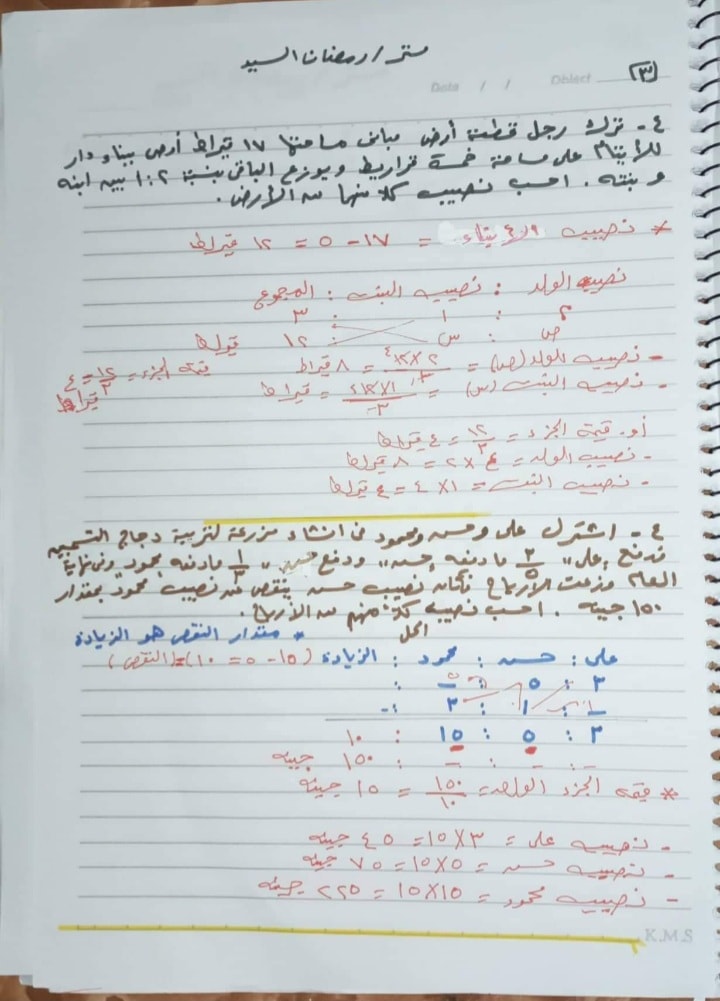 مستر / رمضان السيد
(٣)
Date / / Object
٤ - ترك رجل قطعة أرض مبانى مساحتها ١٧ قيراط أرض ببناء دار
للأيتام على مساحة خمسة قراريط ويوزع الباقى بنسبة ٢ : ١ بين ابنه
وبنته . احسب نصيب كلا منها من الأرض .
* نصيب = ١٧ - ٥ = ١٢ قيراط
نصيب الولد : نصيب البنت : المجموع
٢ : ١ : ٣
ص : س : ١٢ قيراط
- نصيب الولد (ص) = ١٢×٢ / ٣ = ٨ قيراط
قيمة الجزء = ١٢ / ٣ = ٤ قيراط
- نصيب البنت (س) = ١٢×١ / ٣ = قيراط
أو قيمة الجزء = ١٢ / ٣ = ٤ قيراط
- نصيب الولد = ٤ × ٢ = ٨ قيراط
- نصيب البنت = ١ × ٤ = ٤ قيراط
٤ - اشترك على وحسن ومحمود فى انشاء مزرعة لتربية دجاج التسمين
فدفع "على" ٣/٥ ما دفعه "حسن" ودفع حسن ١/٣ ما دفعه محمود وفى نهاية
العام وزعت الأرباح فكان نصيب حسن ينقص عن نصيب محمود بمقدار
١٥٠ جنيه . احسب نصيب كلا منهم من الأرباح .
الحل
* مقدار النقص هو الزيادة
على : حسن : محمود : الزيادة (١٥ - ٥ = ١٠) = (النقص)
٣ : ٥ : -
- : ١ : ٣ : -
٣ : ٥ : ١٥ : ١٠
- : - : - : ١٥٠ جنيه
* قيمة الجزء الواحد = ١٥٠ / ١٠ = ١٥ جنيه
- نصيب على = ٣ × ١٥ = ٤٥ جنيه
- نصيب حسن = ٥ × ١٥ = ٧٥ جنيه
- نصيب محمود = ١٥ × ١٥ = ٢٢٥ جنيه
K.M.S